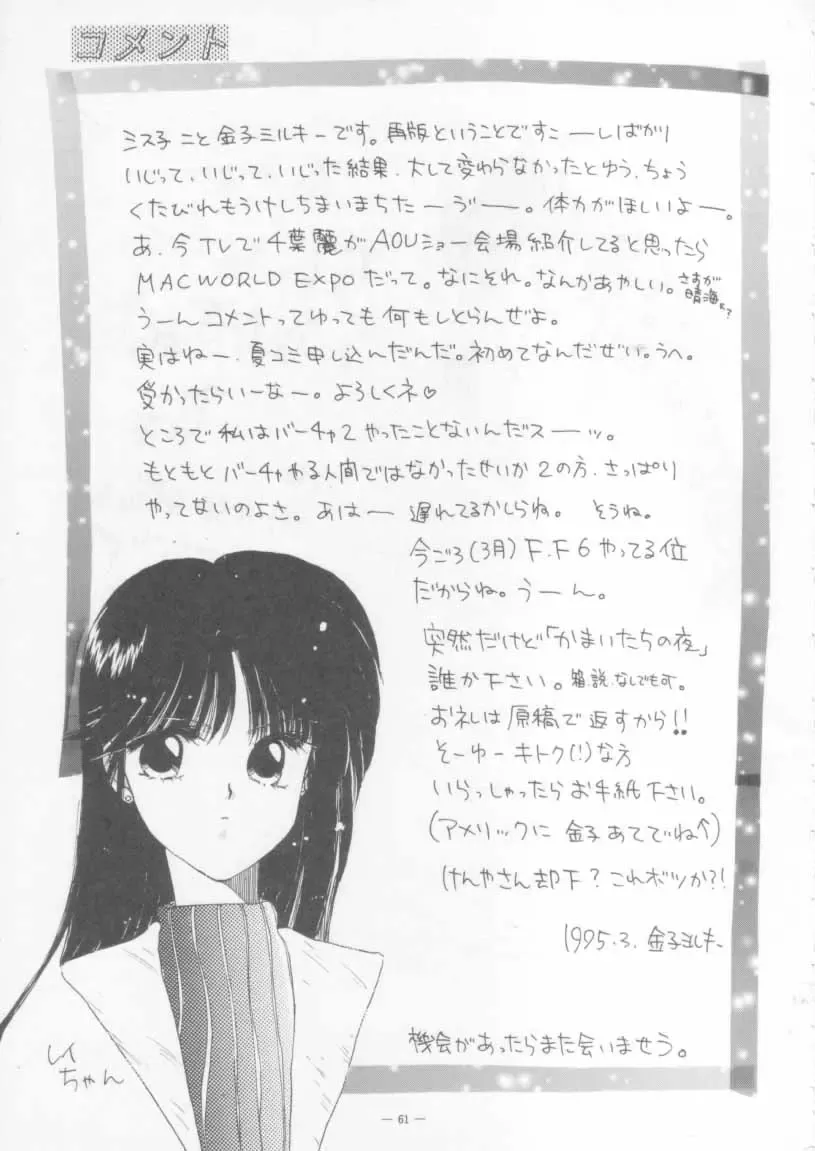 コメント
ミス子こと金子ミルキーです。再版ということですこーしばかり
いじって、いじって、いじった結果、大して変わらなかったとゆう、ちょう
くたびれもうけしちまいまちたーゔーー。体力がほしいよー。
あ、今TVで千葉麗がAOUショー会場紹介してると思ったら
MACWORLD EXPOだって。なにそれ。なんかあやしい。さすが晴海に?
うーんコメントってゆっても何もしとらんぜよ。
実はねー、夏コミ申し込んだんだ。初めてなんだぜい。うへ。
受かったらいーなー。よろしくネ♡
ところで私はバーチャ2やったことないんだスーッ。
もともとバーチャやる人間ではなかったせいか2の方、さっぱり
やってないのよさ。あはー 遅れてるかしらね。 そうね。
今ごろ(3月)F.F6やってる位
だからね。うーん。
突然だけど「かまいたちの夜」
誰か下さい。箱、説、なしでも可。
お礼は原稿で返すから!!
そーゆーキトク(!)な方
いらっしゃったらお手紙下さい。
(アメリックに 金子あてでね↑)
けんやさん却下?これボツか?!
1995.3. 金子ミルキー
機会があったらまた会いませう。
レイ
ちゃん
— 61 —